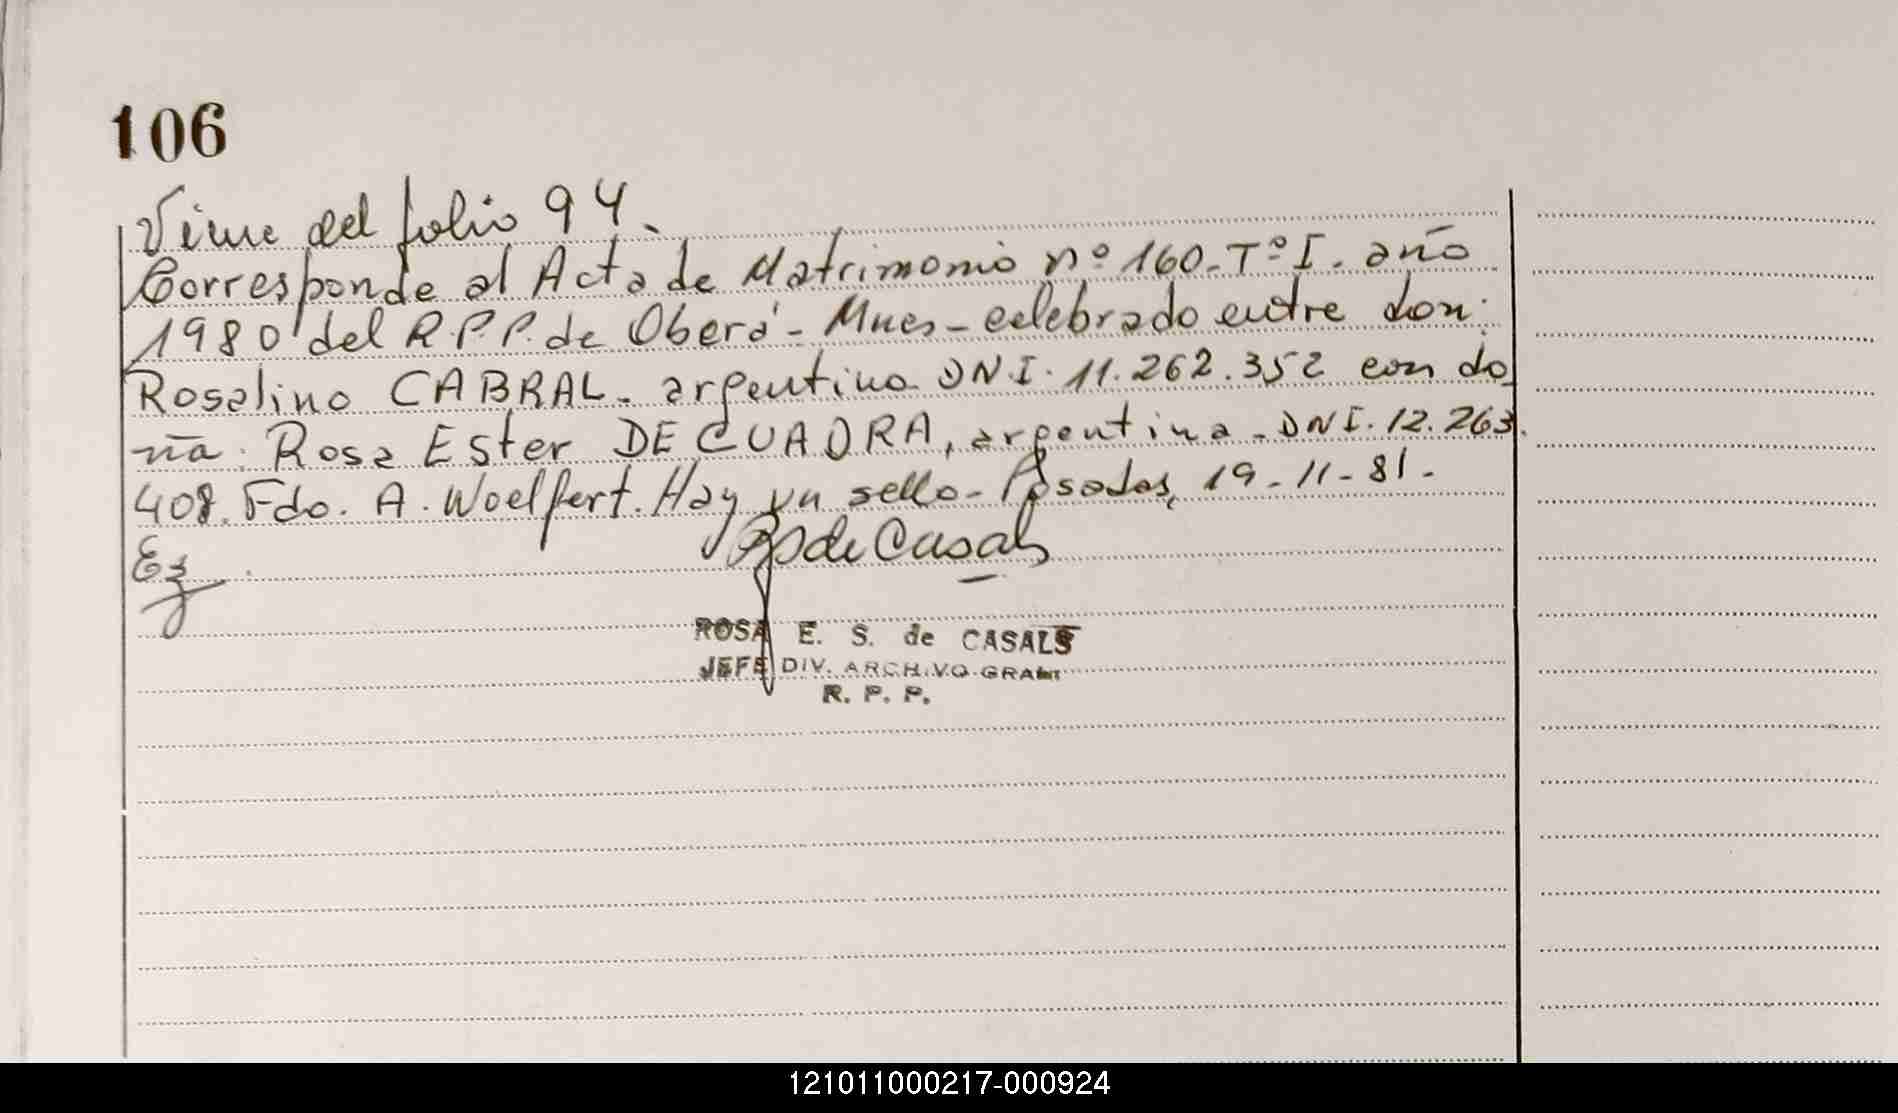 106
Viene del folio 94.
Corresponde al Acta de Matrimonio nº 160-Tº I. año
1980 del R.P.P. de Oberá - Mnes - celebrado entre don:
Rosalino CABRAL - argentino DNI. 11.262.352 con do
ña: Rosa Ester DE CUADRA, argentina - DNI. 12.263.
408. Fdo. A. Woelfert. Hay un sello - Posadas, 19-11-81.
de Casals
ROSA E. S. de CASALS
JEFE DIV. ARCHIVO GRAL
R. P. P.
121011000217-000924